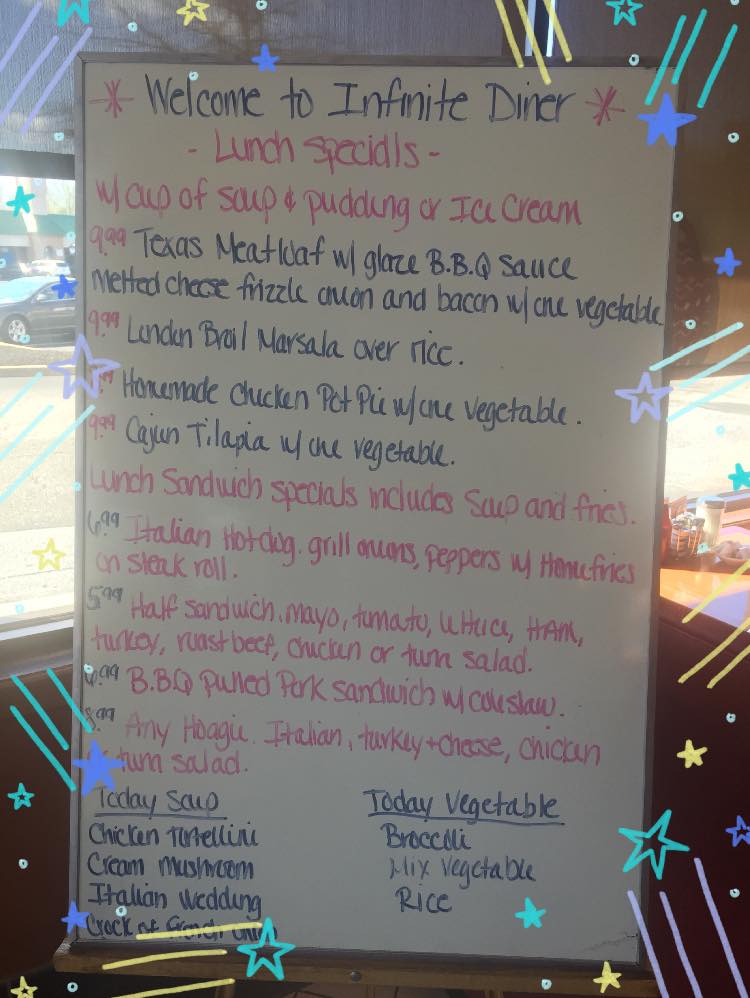 * Welcome to Infinite Diner *
- Lunch specills -
w/ cup of soup & pudding or Ice Cream
9.99 Texas Meatloaf w/ glaze B.B.Q sauce
melted cheese frizzle onion and bacon w/ one vegetable
9.99 London Broil Marsala over rice.
Homemade chicken Pot Pie w/ one vegetable.
9.99 Cajun Tilapia w/ one vegetable.
Lunch Sandwich specials includes Soup and fries.
6.99 Italian Hotdog. grill onions, peppers w/ Homefries
on steak roll.
5.99 Half sandwich. mayo, tomato, lettuce, HAM,
turkey, roast beef, chicken or tuna salad.
6.99 B.B.Q Pulled Pork sandwich w/ coleslaw.
8.99 Any Hoagie. Italian, turkey + cheese, chicken
tuna salad.
Today Soup
Today Vegetable
Chicken Tortellini
Broccoli
Cream Mushroom
Mix Vegetable
Italian Wedding
Rice
Crock of French